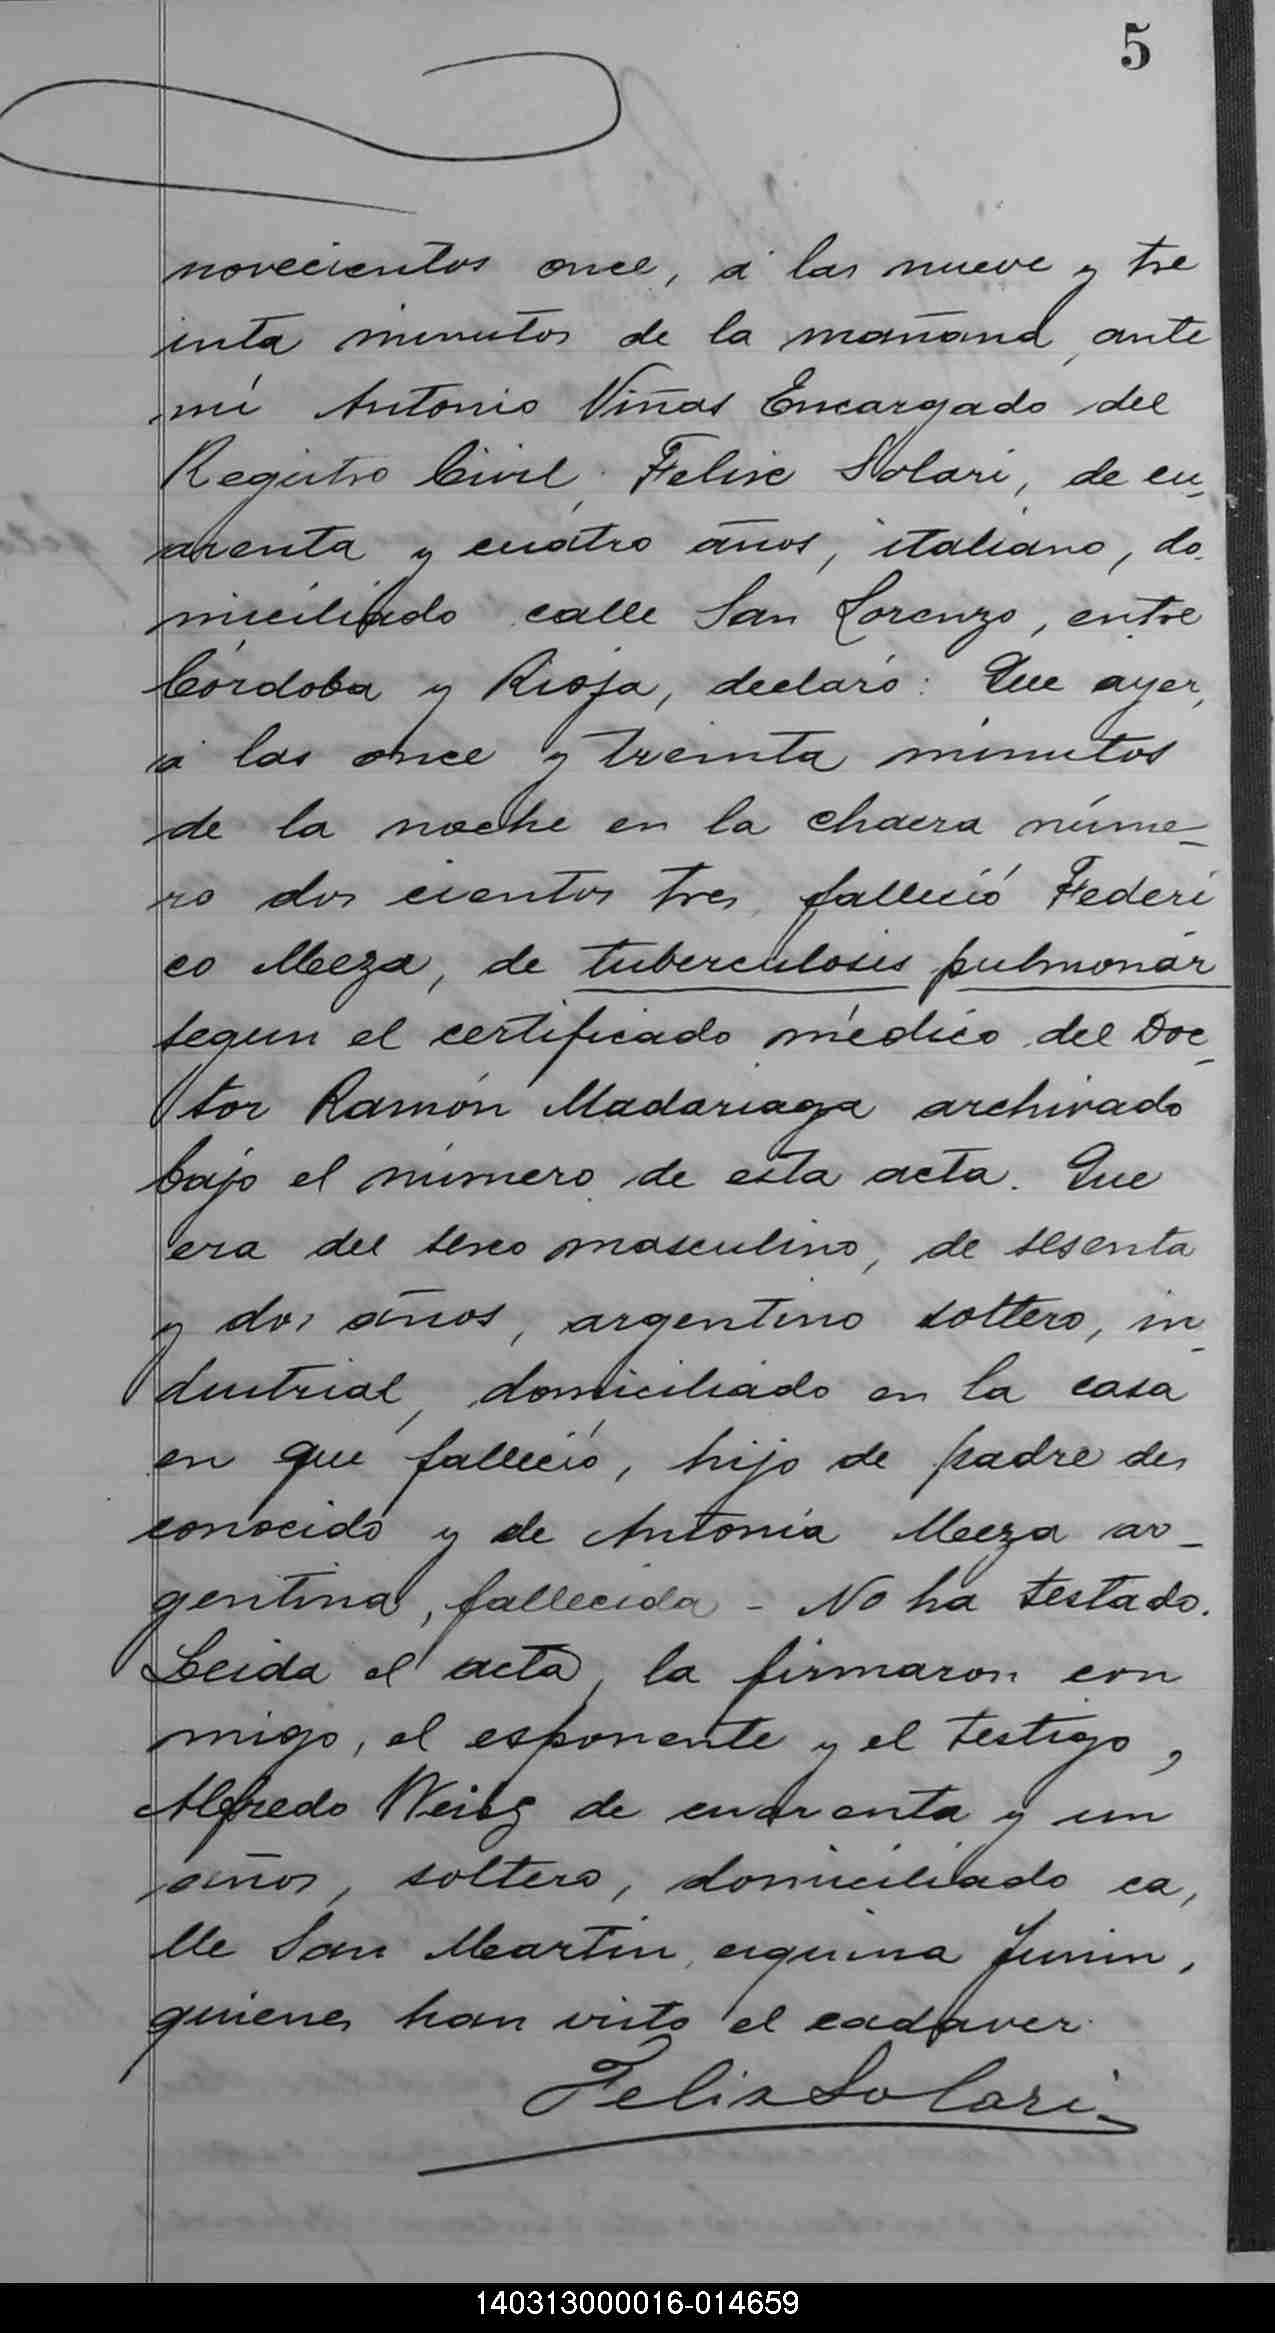 5
novecientos once, á las nueve y tre
inta minutos de la mañana, ante
mí Antonio Viñas Encargado del
Registro Civil, Felix Solari, de cu-
arenta y cuatro años, italiano, do-
miciliado calle San Lorenzo, entre
Córdoba y Rioja, declaró: Que ayer,
á las once y treinta minutos
de la noche en la chacra núme-
ro dos cientos tres, falleció Federi
co Meeza, de tuberculosis pulmonar
segun el certificado médico del Doc-
tor Ramón Madariaga archivado
bajo el número de esta acta. Que
era del sexo masculino, de sesenta
y dos años, argentino soltero, in-
dustrial, domiciliado en la casa
en que falleció, hijo de padre des
conocido y de Antonia Meeza ar-
gentina, fallecida - No ha testado.
Leida el acta, la firmaron con
migo, el esponente y el testigo,
Alfredo de cuarenta y un
años, soltero, domiciliado ca-
lle San Martin, esquina Junin,
quienes han visto el cadaver.
Felix Solari
140313000016-014659